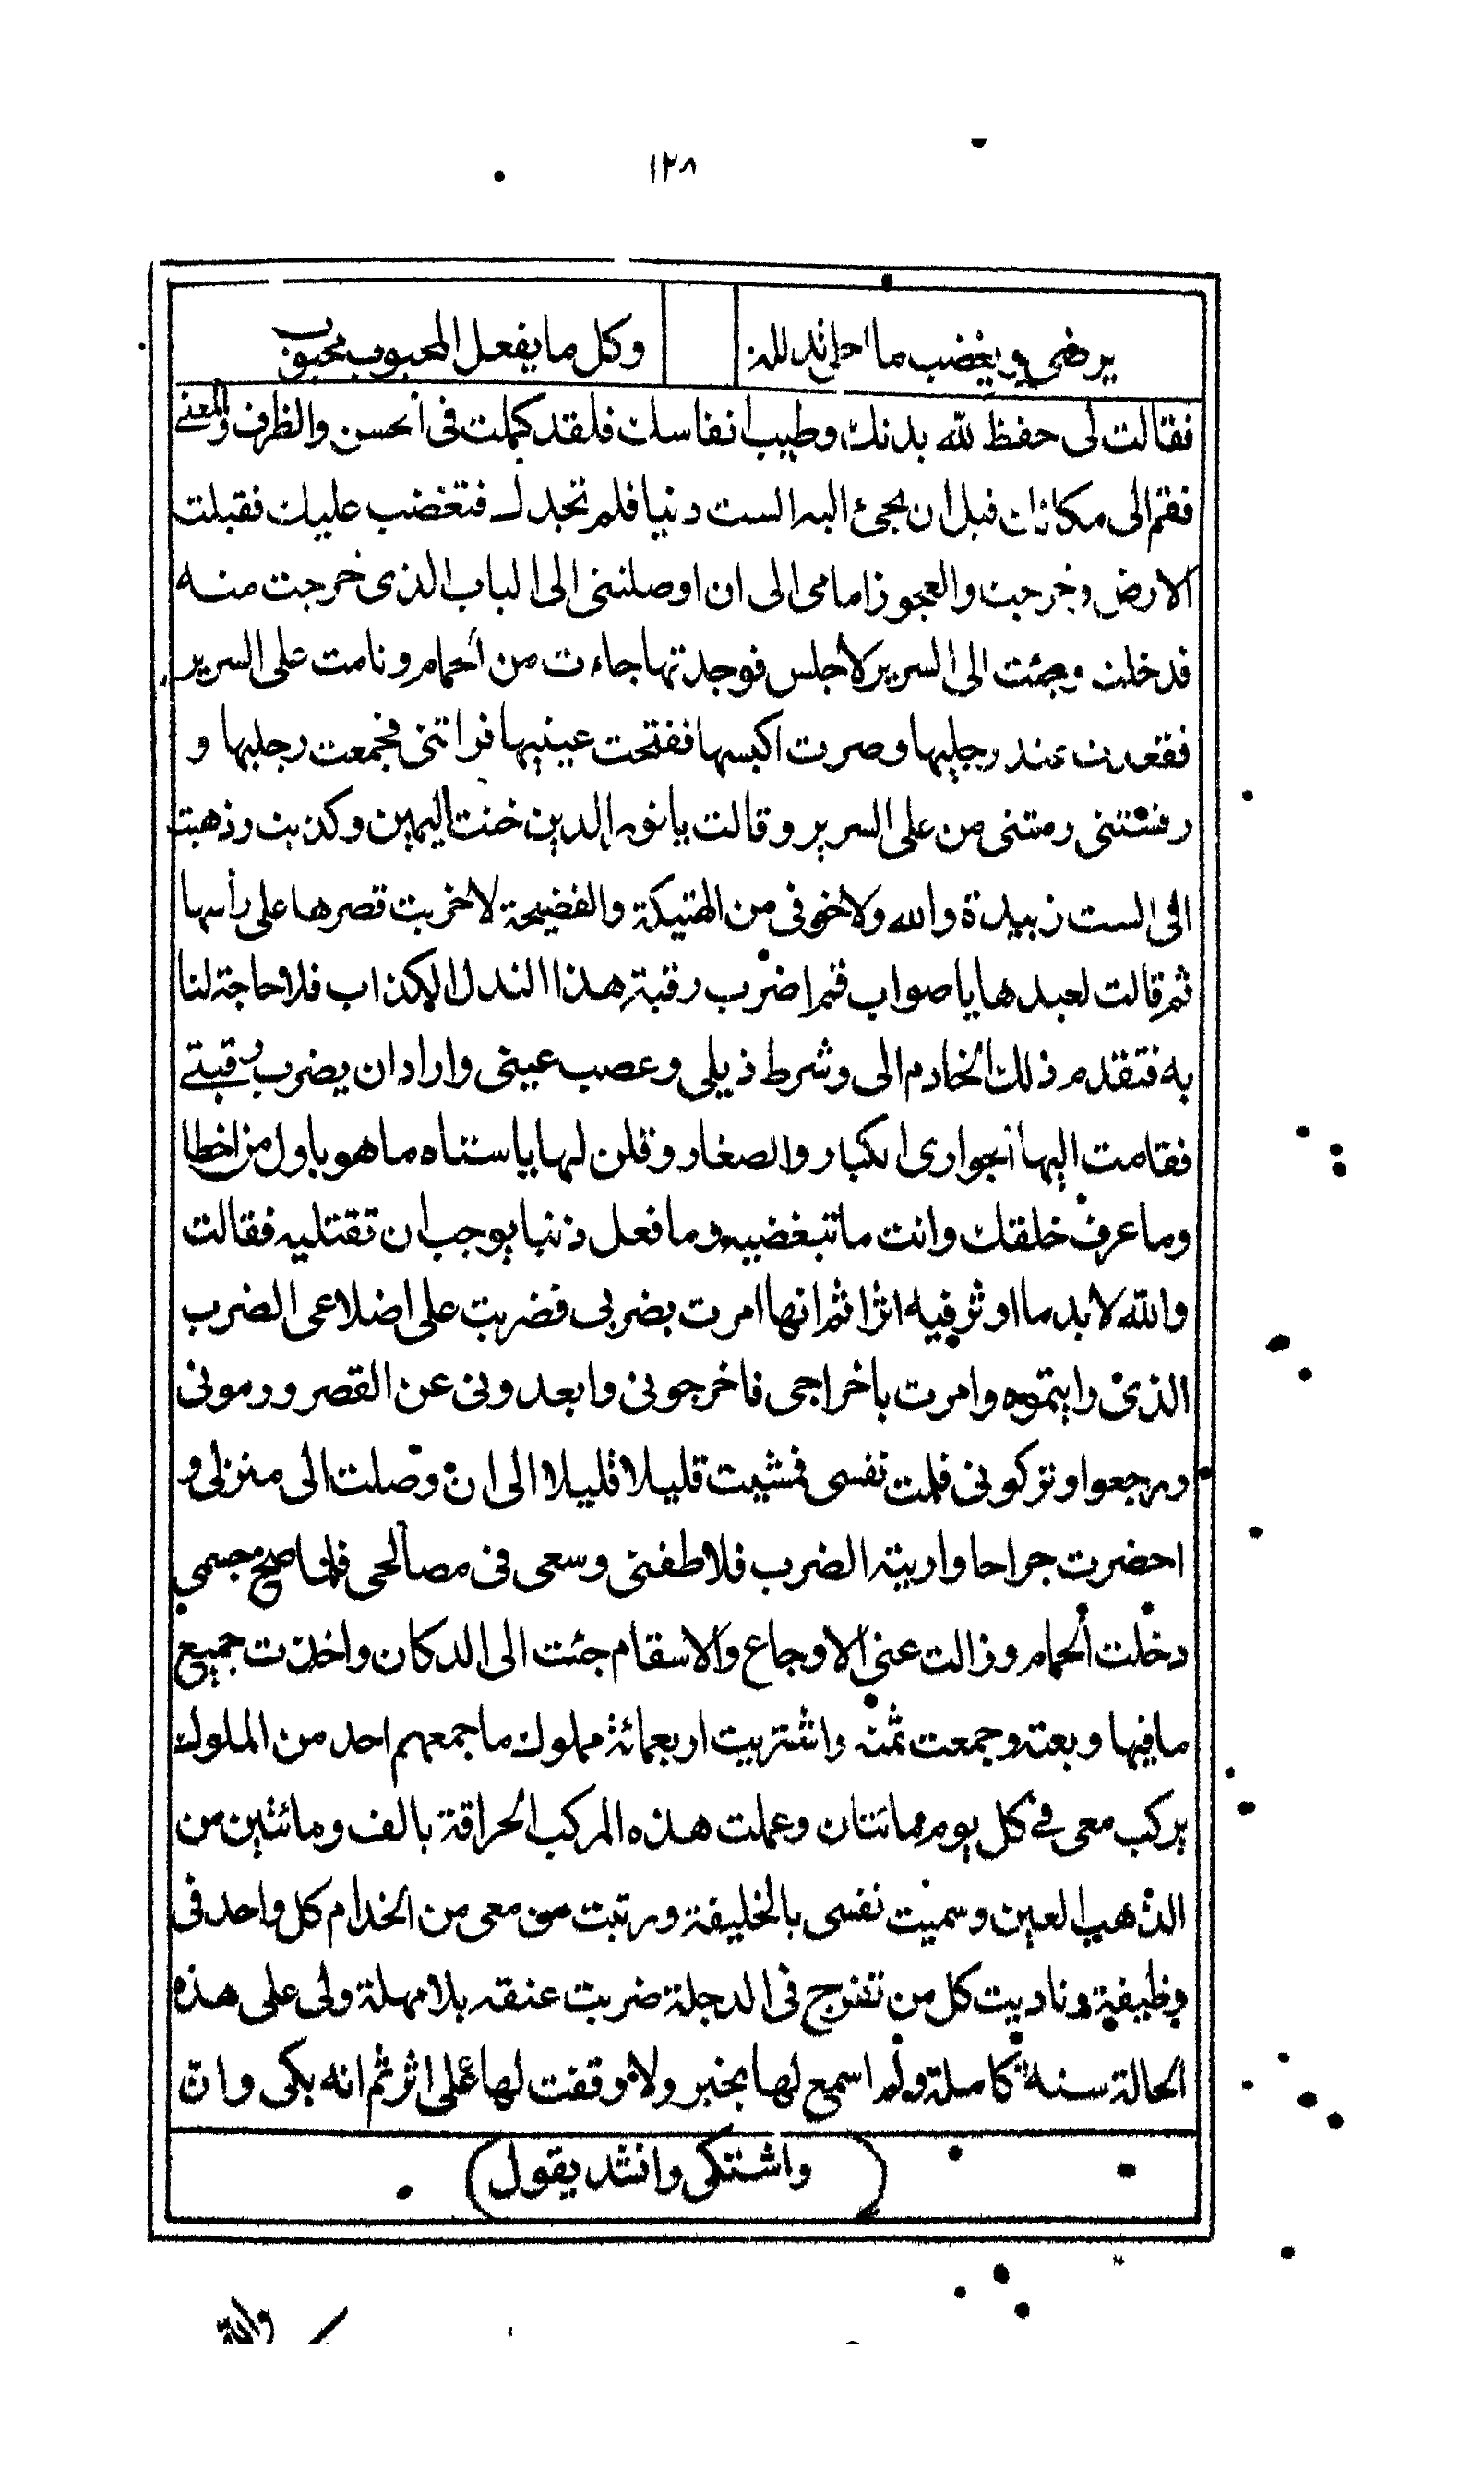 ١٢٨
يرضى ويغضب ما احلى تدلله وكل ما يفعل المحبوب محبوب
فقالت لى حفظ لله بدنك وطيب انفاسك فلقد كملت فى الحسن والظرف والمعنى
فقم الى مكانك قبل ان يجئ اليه الست دنيا فلم تجدك فتغضب عليك فقبلت
الارض وخرجت والعجوز امامى الى ان اوصلنى الى الباب الذى خرجت منه
فدخلت وجئت الى السرير لاجلس فوجدتها جاءت من الحمام ونامت على السرير
فقعدت عند رجليها وصرت اكبسها ففتحت عينيها فراتنى فجمعت رجليها و
رفستنى رمتنى من على السرير وقالت يا نور الدين خنت اليمين وكذبت وذهبت
الى الست زبيدة والله ولا خوفى من الهتيكة والفضيحة لاخربت قصرها على رأسها
ثم قالت لعبدها يا صواب قم اضرب رقبة هذا الندل الكذاب فلا حاجة لنا
به فتقدم ذلك الخادم الى وشرط ذيلى وعصب عينى واراد ان يضرب رقبتى
فقامت اليها الجوارى الكبار والصغار وقلن لها يا ستاه ما هو باول من اخطا
وما عرف خلقك وانت ما تبغضيه وما فعل ذنبا يوجب ان تقتليه فقالت
والله لا بد ما اوثر فيه اثرا ثم انها امرت بضربى فضربت على اضلاعى الضرب
الذى رايتموه وامرت باخراجى فاخرجونى وابعدونى عن القصر ورمونى
ورجعوا وتركونى فلمت نفسى فمشيت قليلا قليلا الى ان وصلت الى منزلى و
احضرت جراحا واريته الضرب فلاطفنى وسعى فى مصالحى فلما صح جسمى
دخلت الحمام وزالت عنى الاوجاع والاسقام جئت الى الدكان واخذت جميع
ما فيها وبعته وجمعت ثمنه واشتريت اربعمائة مملوك ما جمعهم احد من الملوك
يركب معى فى كل يوم مماتتان وعملت هذه المركب الحراقة بالف ومائتين من
الذهب العين وسميت نفسى بالخليفة ورتبت من معى من الخدام كل واحد فى
وظيفة وناديت كل من تفرج فى الدجلة ضربت عنقه بلا مهلة ولى على هذه
الحالة سنة كاملة ولم اسمع لها بخبر ولا وقفت لها على اثر ثم انه بكى وان
(واشتكى وانشد يقول)